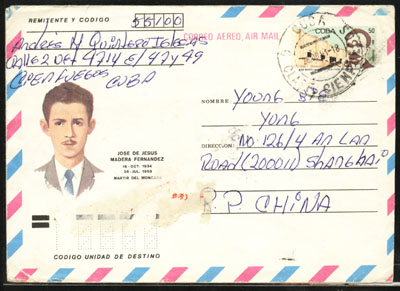 REMITENTE Y CODIGO 55100
Andrés M Quintero Iglesias
Calle 62 Nº 4714 e/ 47 y 49
CIENFUEGOS
CUBA
CORREO AEREO, AIR MAIL
CUBA
50
CUBA
CIENFUEGOS
JOSE DE JESUS
MADERA FERNANDEZ
15-OCT. 1934
26-JUL. 1953
MARTIR DEL MONCADA
NOMBRE: YOUNG
YONG
DIRECCION: NO. 126/4 AN LAN
ROAD (200011) SHANGHAI.
P.P. CHINA
CODIGO UNIDAD DE DESTINO